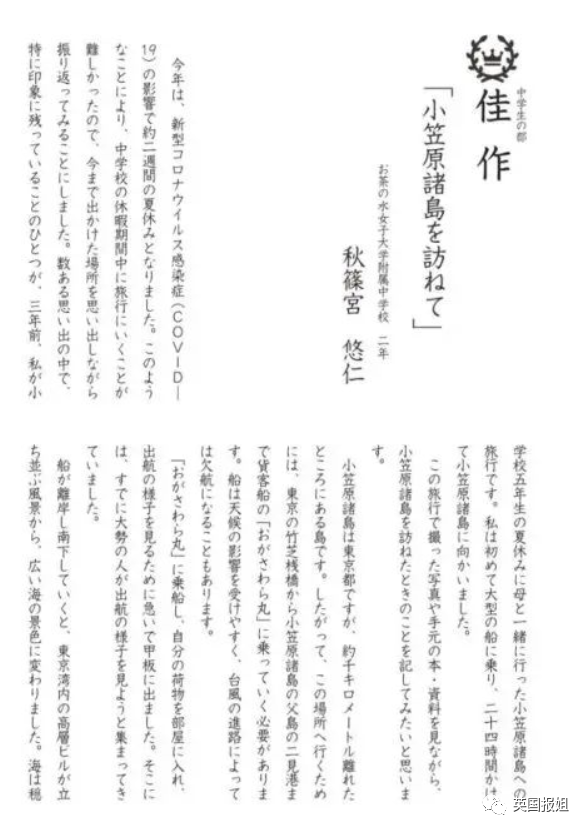 中学生の部
佳作
「小笠原諸島を訪ねて」
お茶の水女子大学附属中学校 二年
秋篠宮 悠仁
今年は、新型コロナウイルス感染症（COVID―
19）の影響で約二週間の夏休みとなりました。このよう
なことにより、中学校の休暇期間中に旅行にいくことが
難しかったので、今まで出かけた場所を思い出しながら
振り返ってみることにしました。数ある思い出の中で、
特に印象に残っていることのひとつが、三年前、私が小
学校五年生の夏休みに母と一緒に行った小笠原諸島への
旅行です。私は初めて大型の船に乗り、二十四時間かけ
て小笠原諸島に向かいました。
この旅行で撮った写真や手元の本・資料を見ながら、
小笠原諸島を訪ねたときのことを記してみたいと思いま
す。
小笠原諸島は東京都ですが、約千キロメートル離れた
ところにある島です。したがって、この場所へ行くため
には、東京の竹芝桟橋から小笠原諸島の父島の二見港ま
で貨客船の「おがさわら丸」に乗っていく必要がありま
す。船は天候の影響を受けやすく、台風の進路によって
は欠航になることもあります。
「おがさわら丸」に乗船し、自分の荷物を部屋に入れ、
出航の様子を見るために急いで甲板に出ました。そこに
は、すでに大勢の人が出航の様子を見ようと集まってき
ていました。
船が離岸し南下していくと、東京湾内の高層ビルが立
ち並ぶ風景から、広い海の景色に変わりました。海は穏
英国报姐